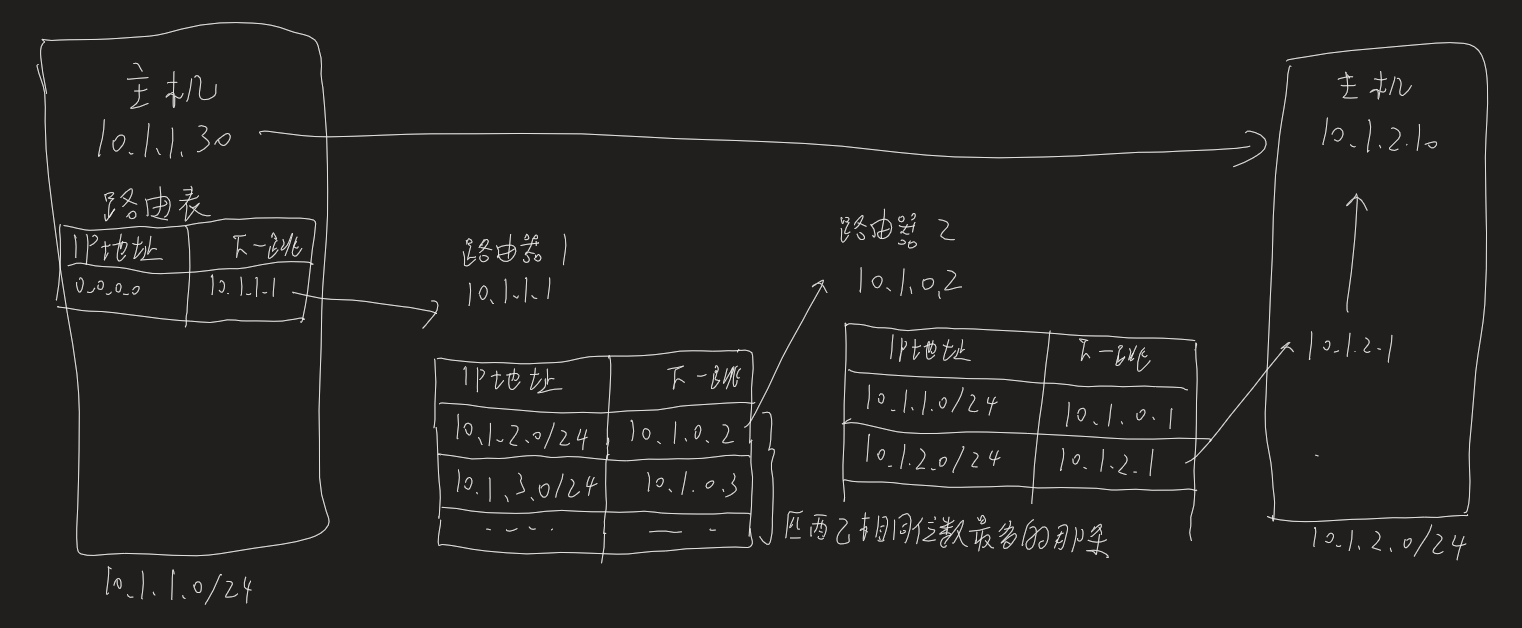 主机
10.1.1.30
路由表
IP地址 下一跳
0.0.0.0 10.1.1.1
10.1.1.0/24
路由器1
10.1.1.1
IP地址 下一跳
10.1.2.0/24 10.1.0.2
10.1.3.0/24 10.1.0.3
匹配相同位数最多的那条
路由器2
10.1.0.2
IP地址 下一跳
10.1.1.0/24 10.1.0.1
10.1.2.0/24 10.1.2.1
主机
10.1.2.10
10.1.2.1
10.1.2.0/24